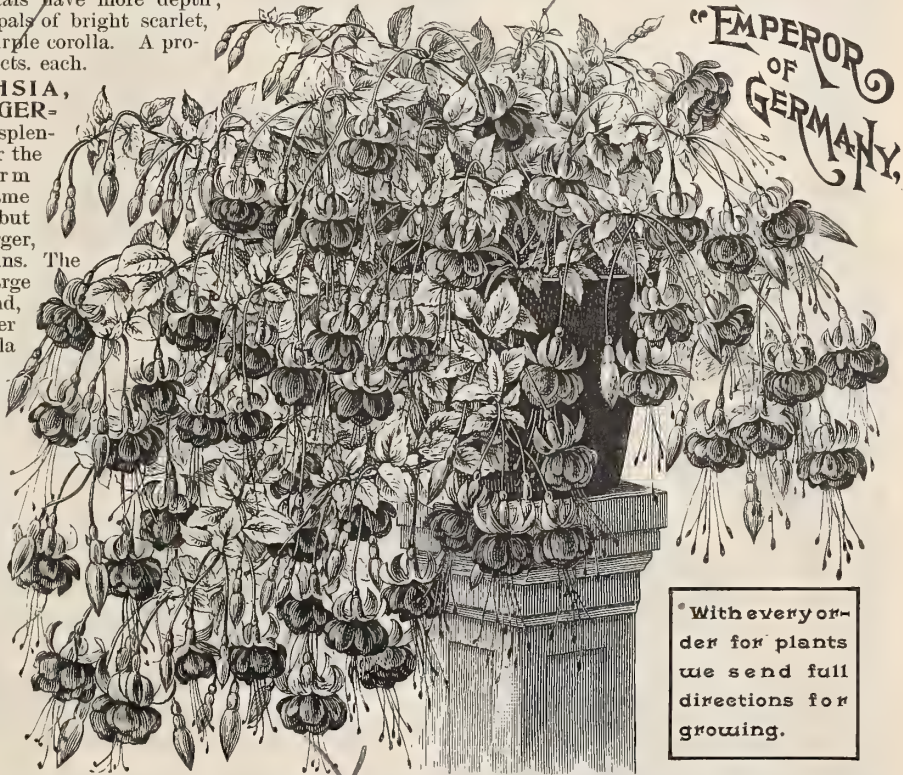 tals have more depth,
pals of bright scarlet,
rple corolla. A pro-
cts. each.
HSIA,
GER-
splen-
r the
rm
me
but
rger,
ns. The
arge
nd,
er
la
"EMPEROR
OF
GERMANY,
With every or-
der for plants
we send full
directions for
growing.